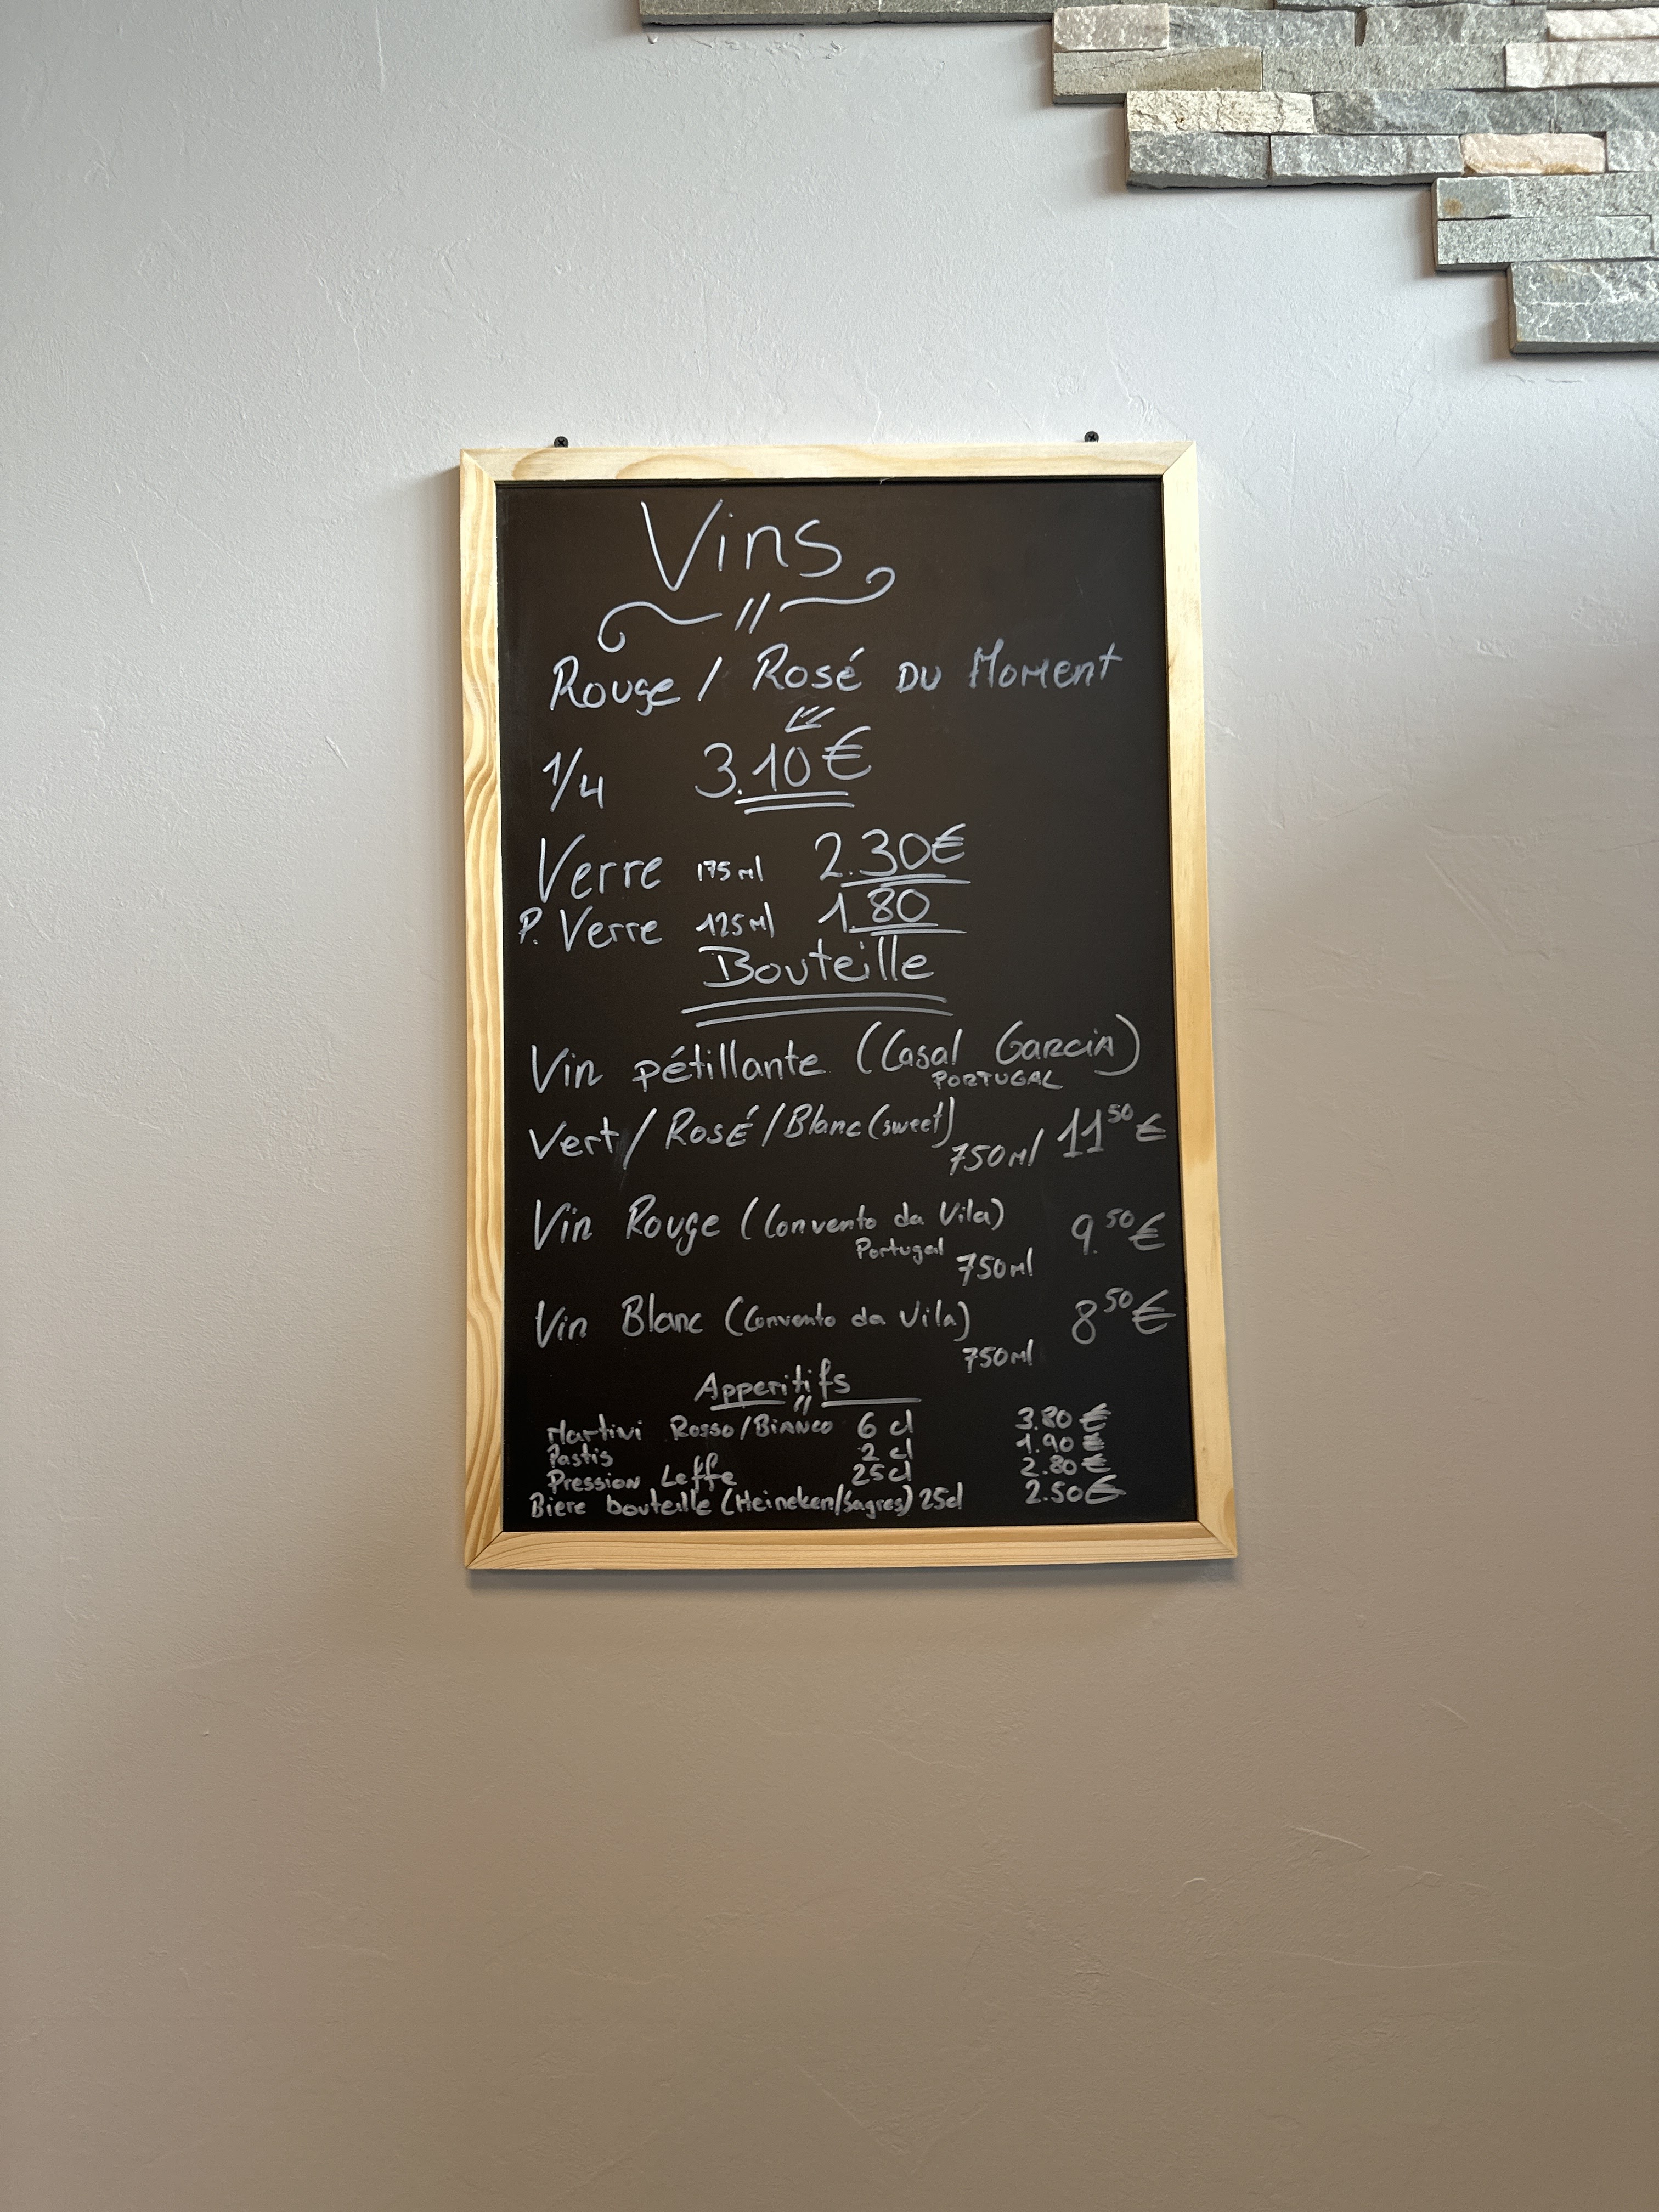 Vins
Rouge / Rosé du Moment
1/4 3.10€
Verre 175ml 2.30€
P. Verre 125ml 1.80
Bouteille
Vin pétillante (Casal Garcia)
PORTUGAL
Vert/Rosé/Blanc(sweet) 750ml 11⁵⁰€
Vin Rouge (Convento da Vila) 9.⁵⁰€
Portugal 750ml
Vin Blanc (Convento da Vila) 8⁵⁰€
750ml
Apperitifs
Martivi Rosso/Bianco 6 cl 3.80€
Pastis 2 cl 1.90€
Pression Leffe 25cl 2.80€
Biere bouteille (Heineken/Sagres) 25cl 2.50€